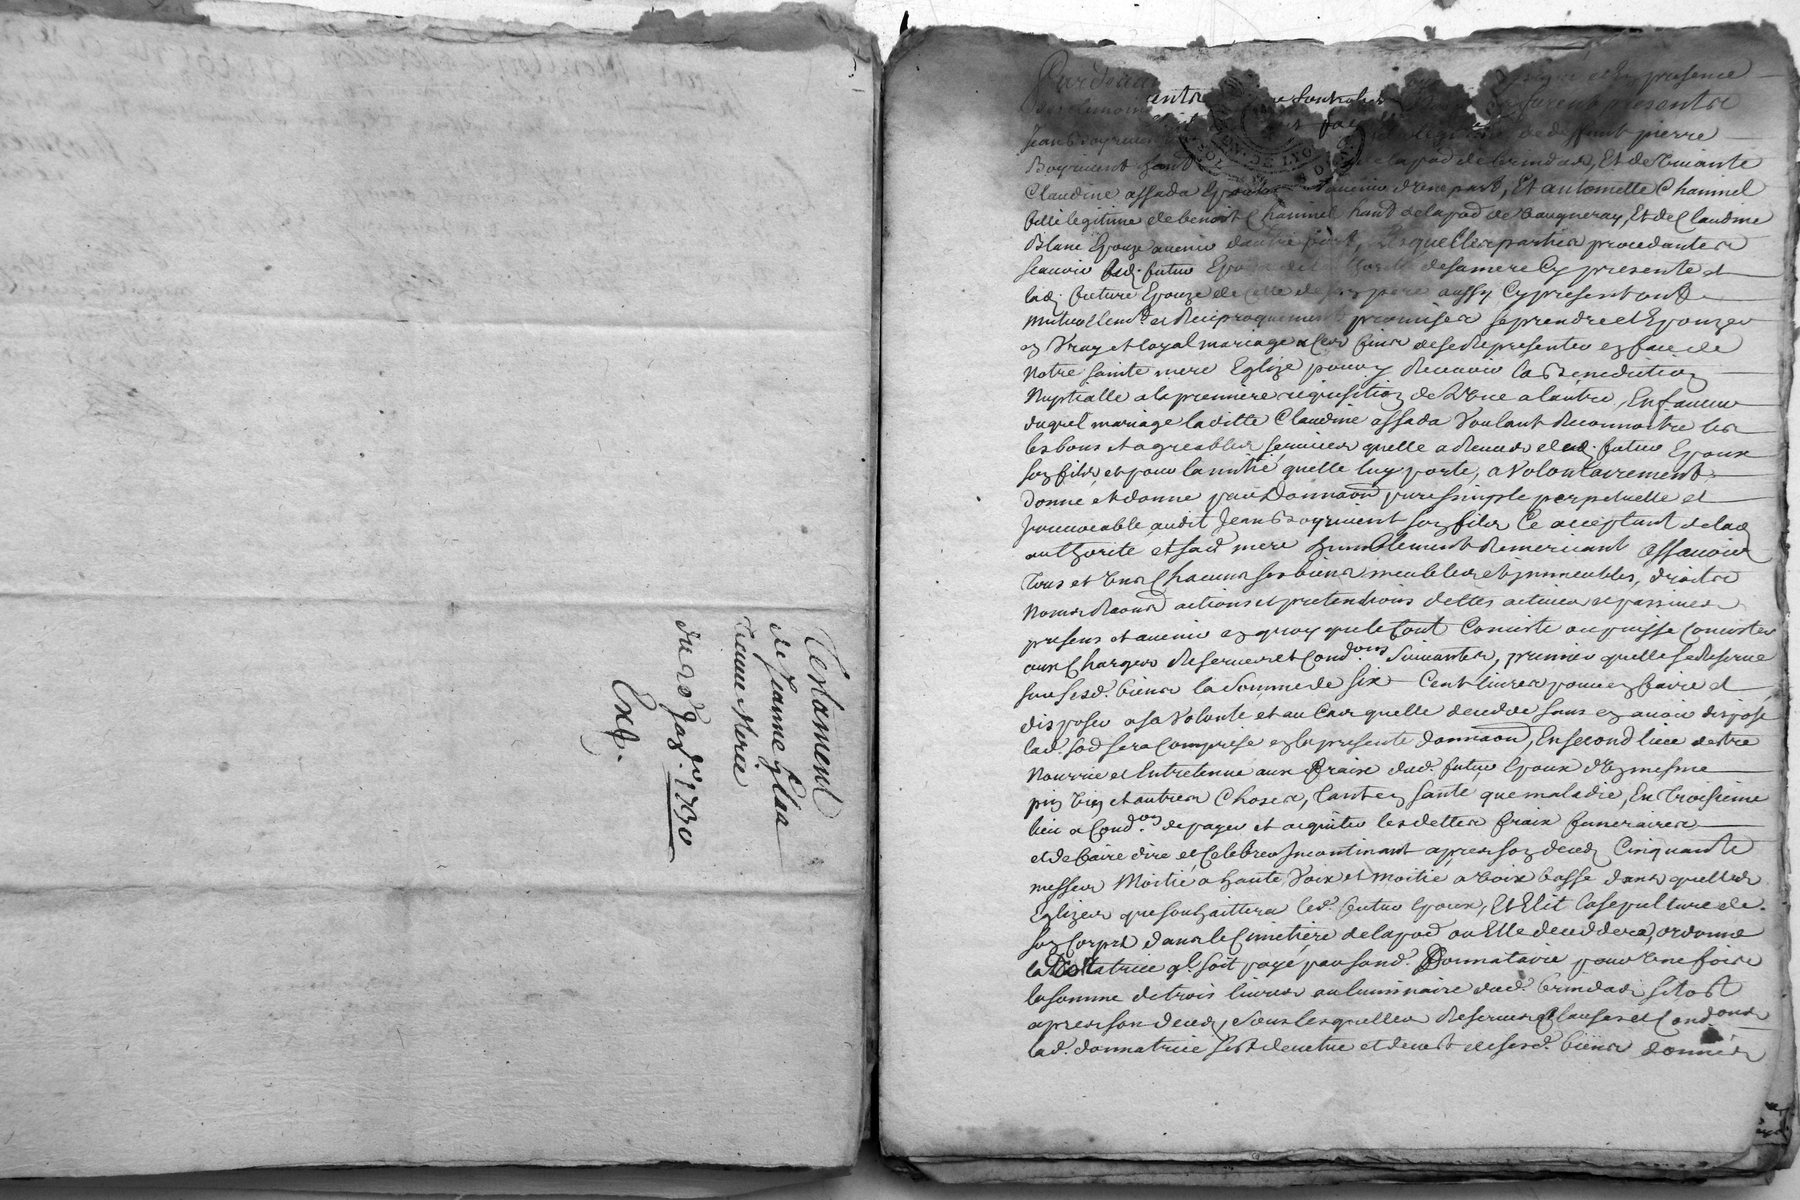 Testament
de Jeanne
veuve
du 10e Jan. 1730
Exp.
Pardevant signé et en presence
furent presents
Jean Boyrivent de deffunt pierre
Boyrivent de la pad de brindas, Et de vivante
Claudine assada Epoux avenir d'une part, Et antoinette Chammel
fille legitime de benoit Chammel habt de la pad de vaugneray, Et de Claudine
Blanc Epouze avenir d'autre part, Lesquelles parties procedantes
scavoir led. futur Epoux de l'authorité de sa mere Cy presente et
lad. future Epouze de Celle de son pere aussy Cy present ont
mutuellemt et Reciproquement promis se prendre et Epouzer
en Vray et loyal mariage a Ces fins de se Representer en face de
Notre sainte mere Eglize pour y Recevoir la Benediction
Nuptialle a la premiere requisition de L'une a l'autre, En faveur
duquel mariage laditte Claudine assada Voulant Reconnoitre les
les bons et agreables services quelle a Receus dud. futur Epoux
son fils et pour l'amitié quelle luy porte, a Volontairement
donné et donne par Donnaon pure simple perpetuelle et
Irrevocable audit Jean Boyrivent son fils Ce acceptant de lad
authorité et sad mere humblement Remerciant assavoir
tous et uns Chacuns ses biens meubles et immeubles, droits
Noms Raons actions et pretentions dettes actives et passives
presens et avenir en quoy que le tout Consiste ou puisse Consister
aux Charges Reserves et Condons Suivantes, premier quelle se Reserve
sur sesd. biens la Somme de six Cent livres pour en faire et
disposer a sa Volonté et au Cas quelle decede sans en avoir disposé
lad. sod sera Comprise en la presente donnaon, En second lieu destre
Nourrie et Entretenue aux fraix dud. futur Epoux d'un mesme
pin vin et autres Choses, tant en santé que maladie, En troisieme
lieu a Condon de payer et acquitter les dettes fraix funeraires
et de faire dire et Celebrer Incontinant apres son deced Cinquante
messes Moitié a haute Voix et moitié a voix basse dans quelles
Eglizes que souhaittera led. futur Epoux, Et Elit la sepulture de
son Corps dans le Cimetiere de la pad ou Elle deceddera, ordonne
la Donatrice ql. soit payé par sond. Donnataire pour une fois
la somme de trois livres au luminaire dud. brindas sitost
apres son deced, Sous lesquelles Reserves Clauses et Condons
lad. donnatrice s'est devetue et devest de sesd. biens donnés